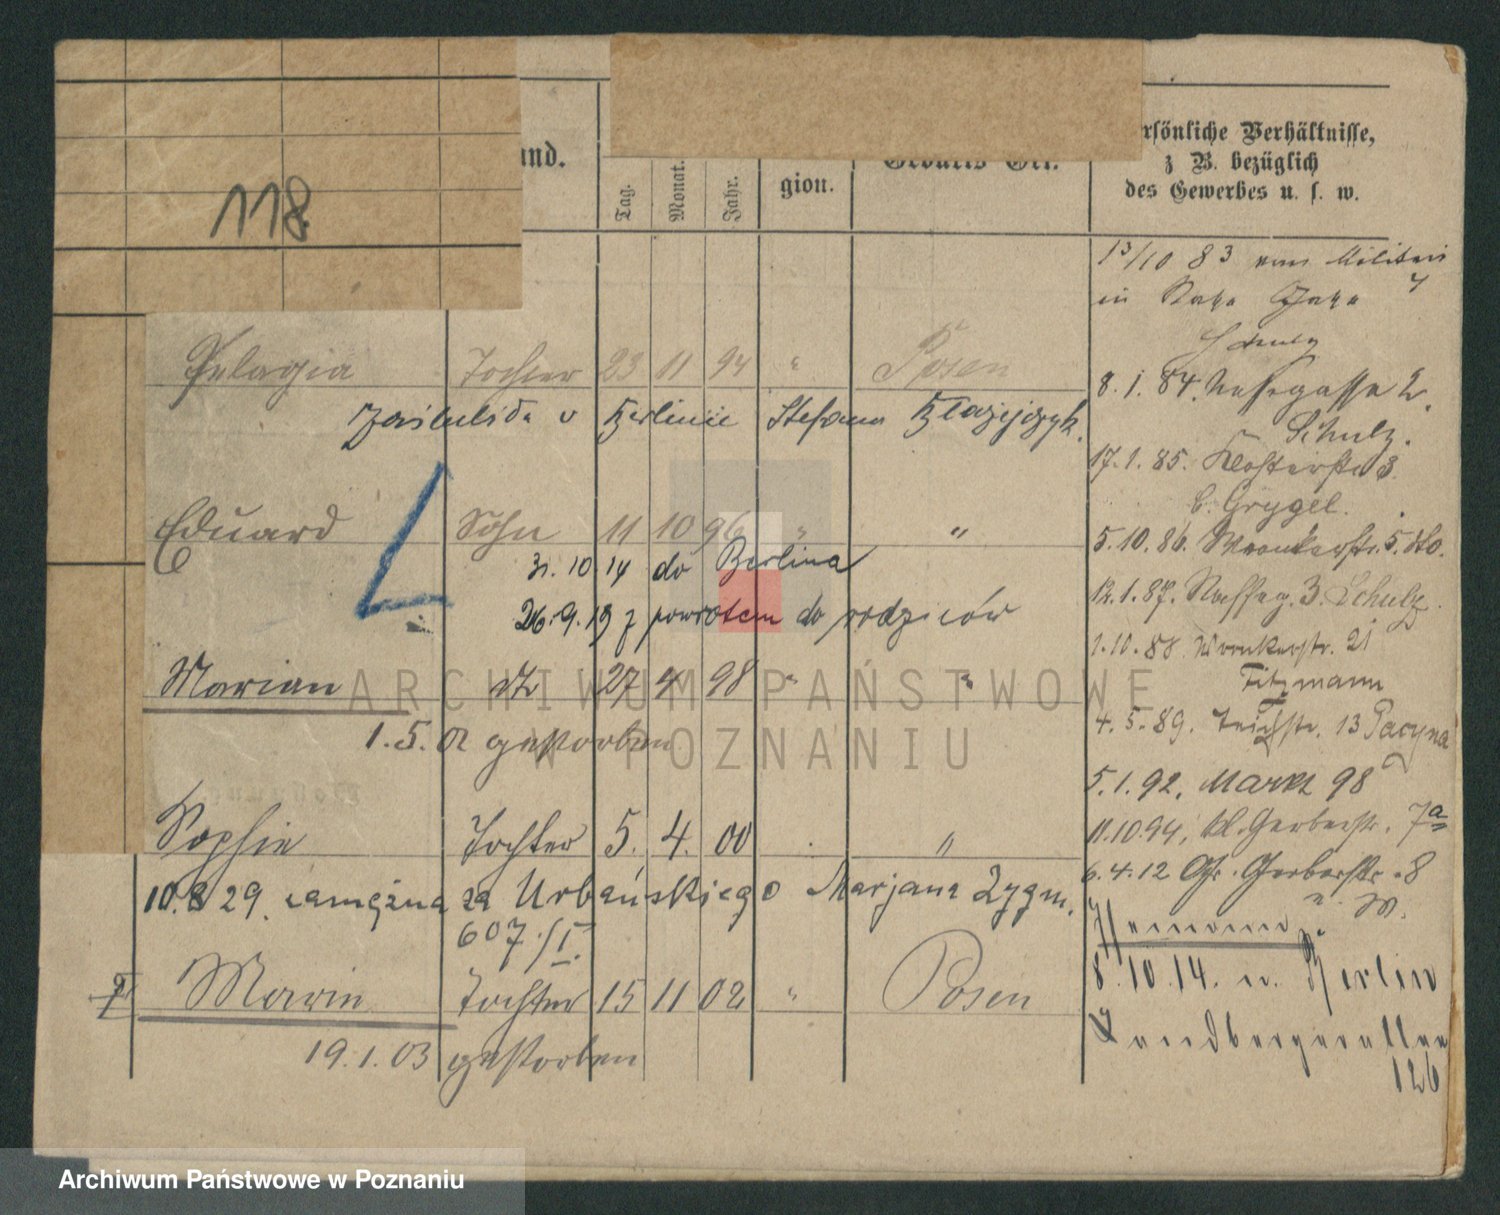 118.
and.
Tag.
Monat.
Jahr.
gion.
Geburts Ort.
rsönliche Verhältnisse,
z B. bezüglich
des Gewerbes u. s. w.
Pelagia Tochter 23 11 94 " Posen
zaślubiła w Berlinie Stefana Błażejczyk.
Eduard Sohn 11 10 96 " "
31.10.14 do Berlina
26.9.19 z powrotem do rodziców
Marian dto 27 4 98 " "
1.5.01 gestorben
Sophie Tochter 5. 4. 00 "
10.8 29. zamężna za Urbańskiego Marjana Zygm.
607/I.
Marie Tochter 15 11 02 " Posen
19.1.03 gestorben
13/10 83 vom Militair
in
Schulz
8.1.84. 2.
Schulz.
17.1.85. Klosterstr 3.
b. Grygel.
5.10.86. Wronkerstr. 5.
12.1.87. 3. Schulz.
1.10.88 Wronkerstr. 21
Fitzmann
4.5.89. Teichstr. 13 Pacyna
5.1.92. Markt 98
11.10.94, kl. Gerberstr. 7a
6.4.12 Gr. Gerberstr. 8
Hemann
8.10.14. n. Berlin
Landsbergerallee
126
ARCHIWUM PAŃSTWOWE
W POZNANIU
Archiwum Państwowe w Poznaniu